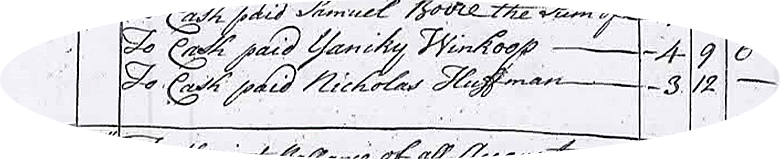 Cash paid Samuel Bovie the sum of
To Cash paid Yaniky Winkoop — 4 9 0
To Cash paid Nicholas Huffman — 3 12 —
of all